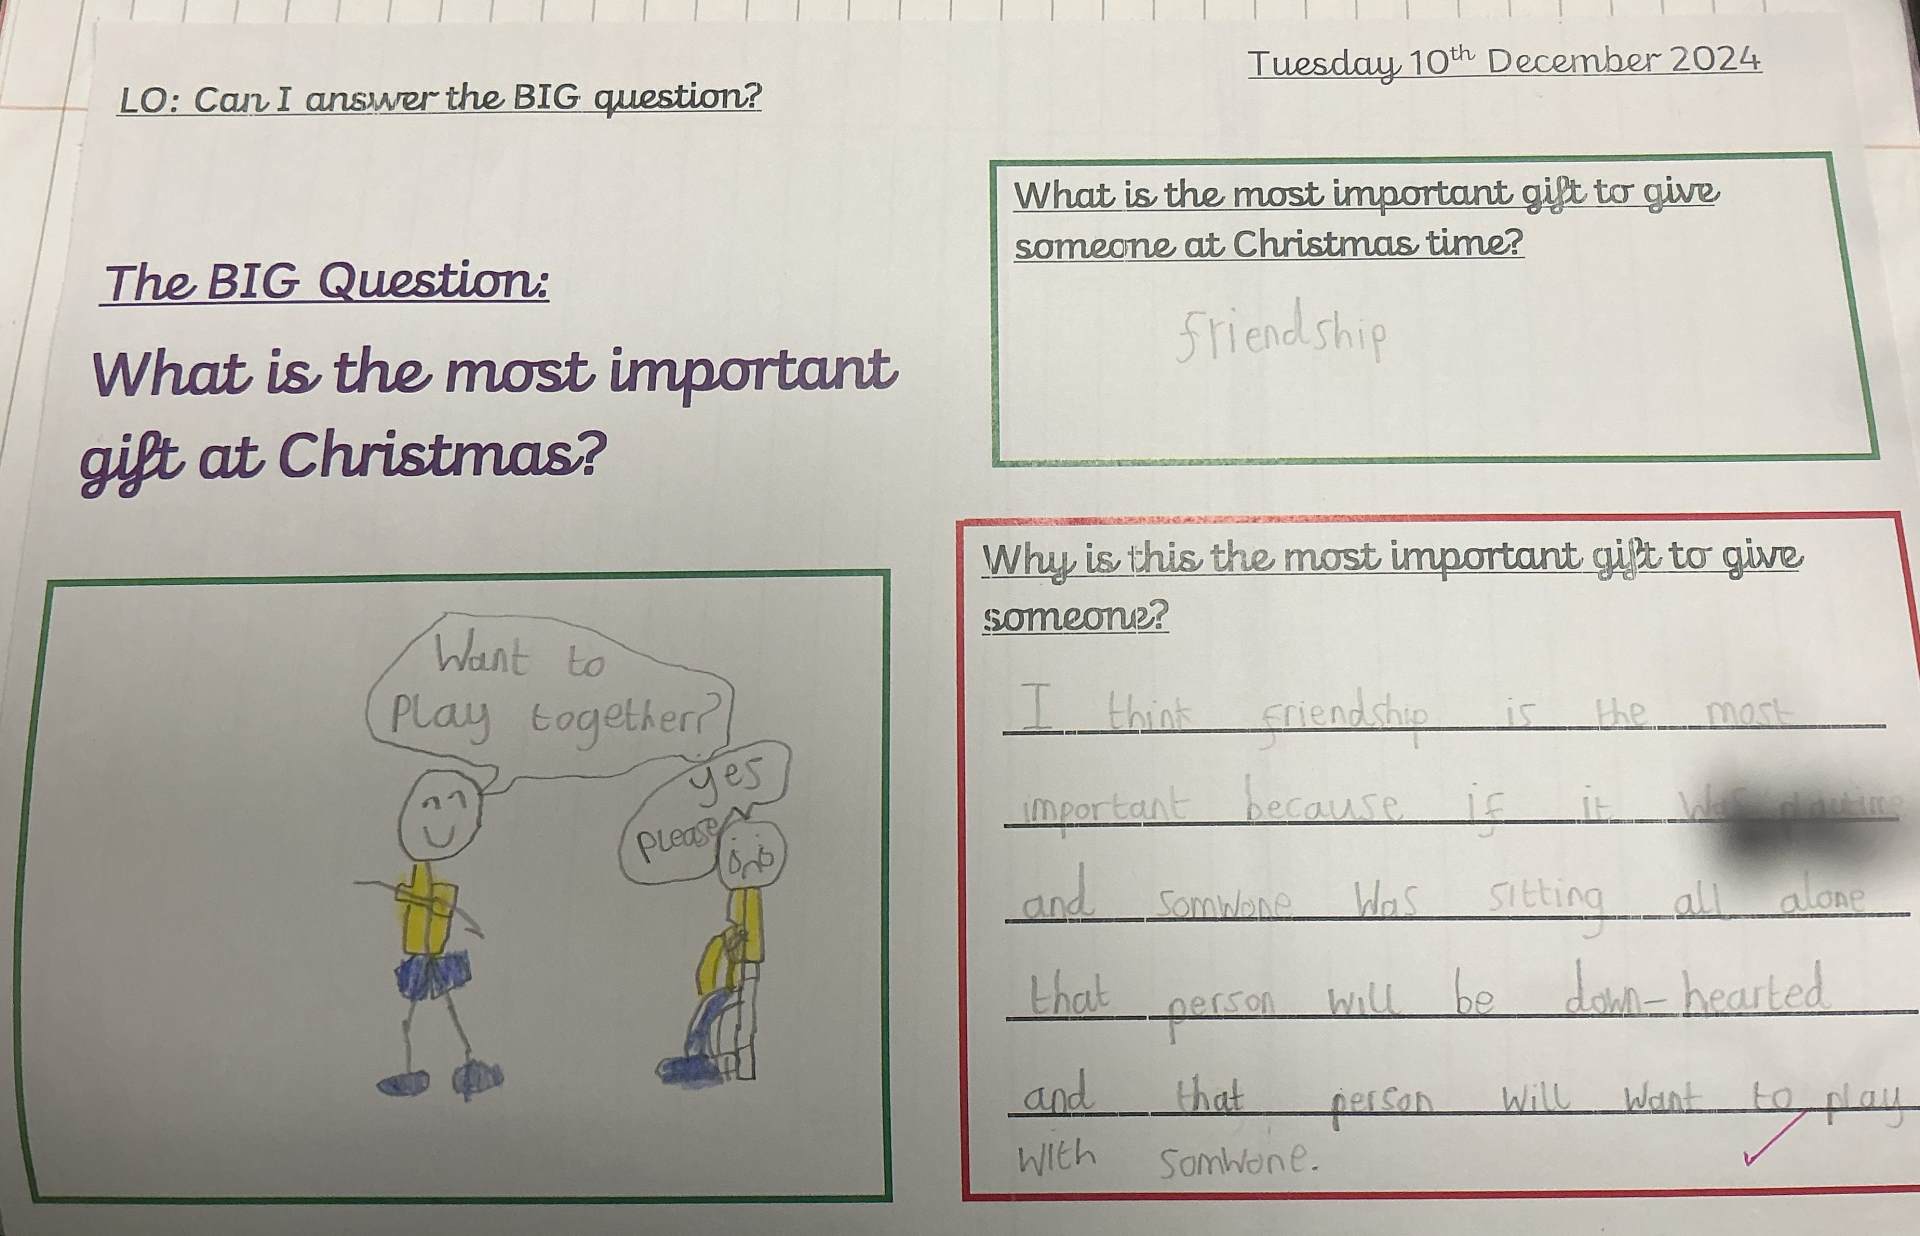 Tuesday 10th December 2024
LO: Can I answer the BIG question?
The BIG Question:
What is the most important
gift at Christmas?
What is the most important gift to give
someone at Christmas time?
friendship
Want to
Play together?
yes
please
Why is this the most important gift to give
someone?
I think friendship is the most
important because if it was
and somwone was sitting all alone
that person will be down-hearted
and that person will want to play
with somwone.